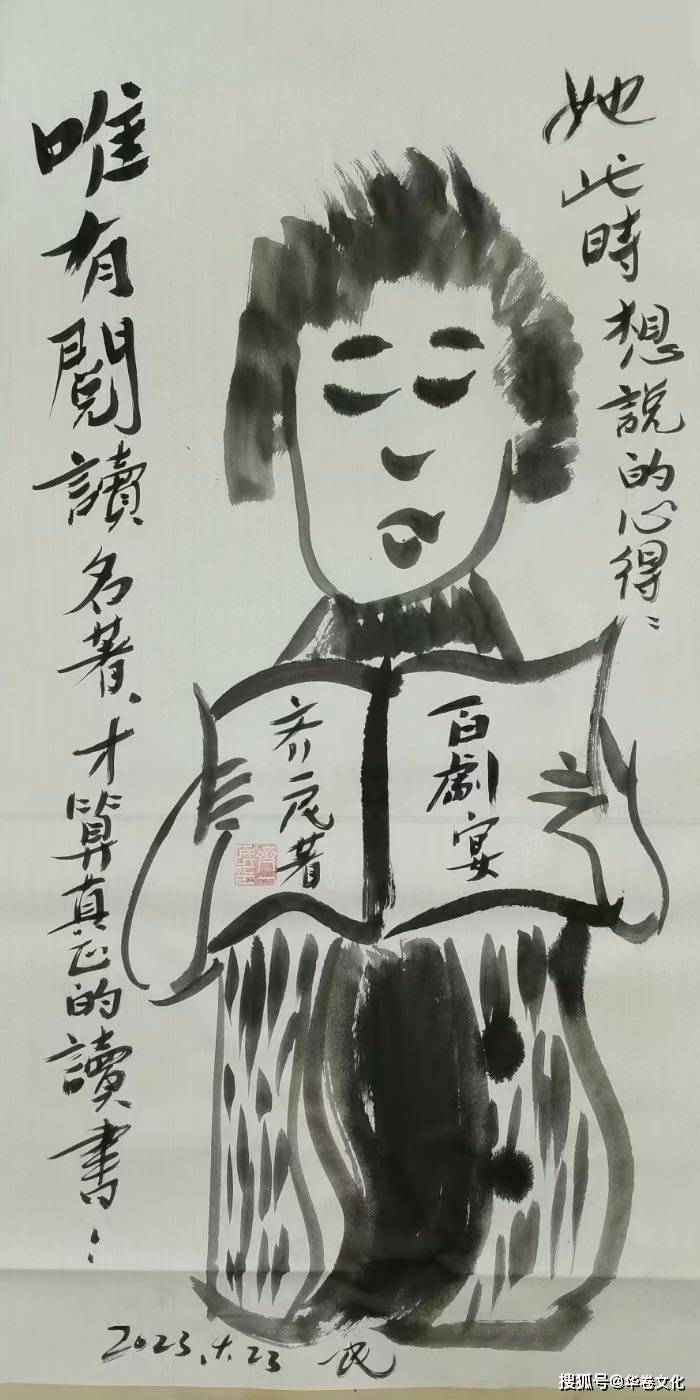 她此時想說的心得：
百劇宴
齐一民著
唯有閱讀名著、才算真正的讀書：
2023.4.23 民
搜狐号@华卷文化